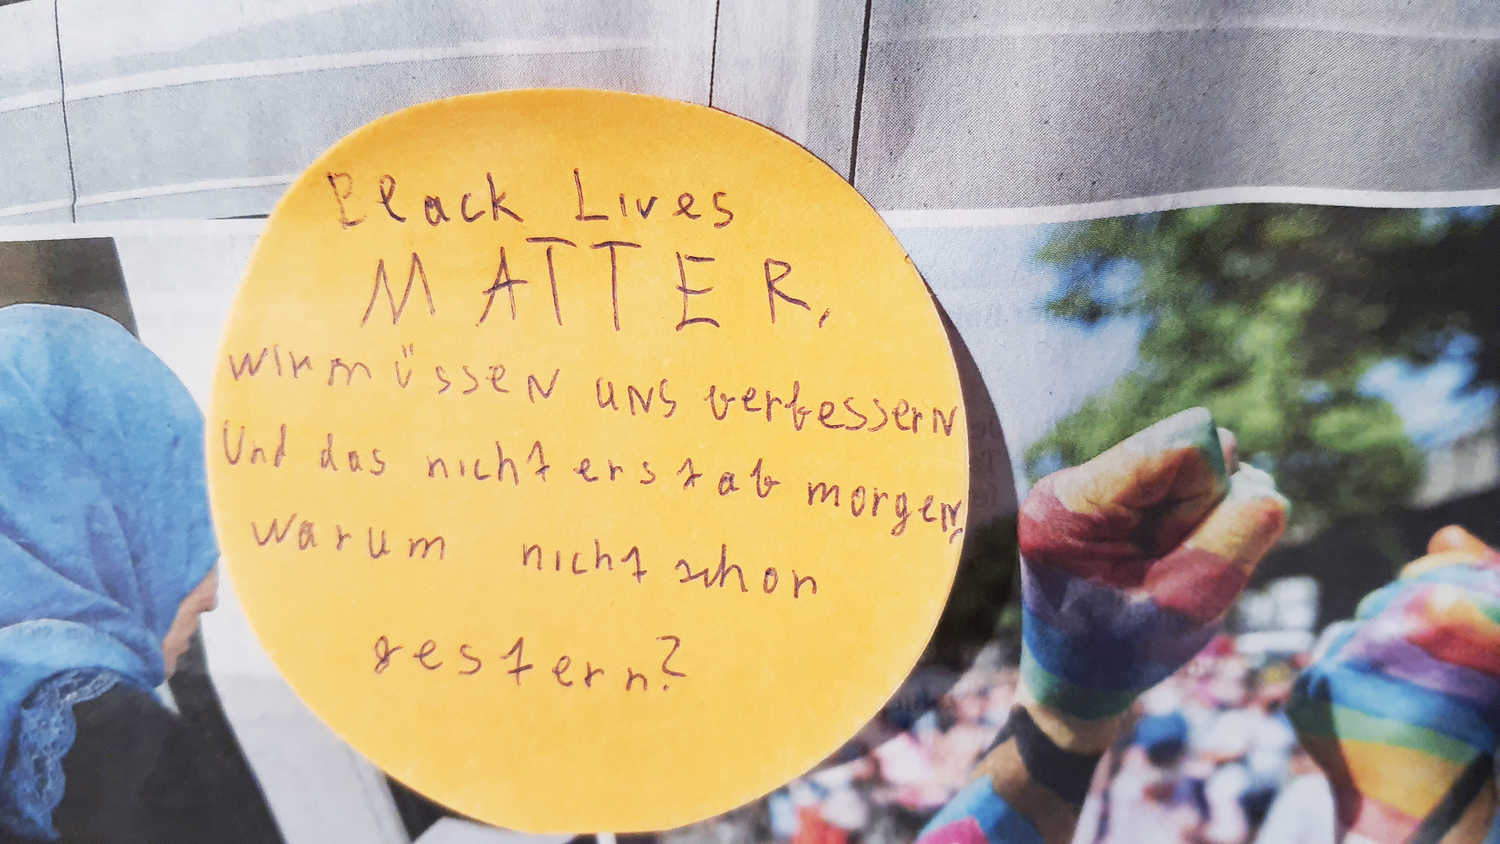 Black Lives
MATTER,
wir müssen uns verbessern
Und das nicht erst ab morgen,
warum nicht schon
gestern?